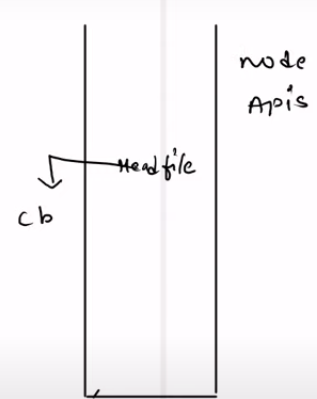 node
Apis
Headfile
cb